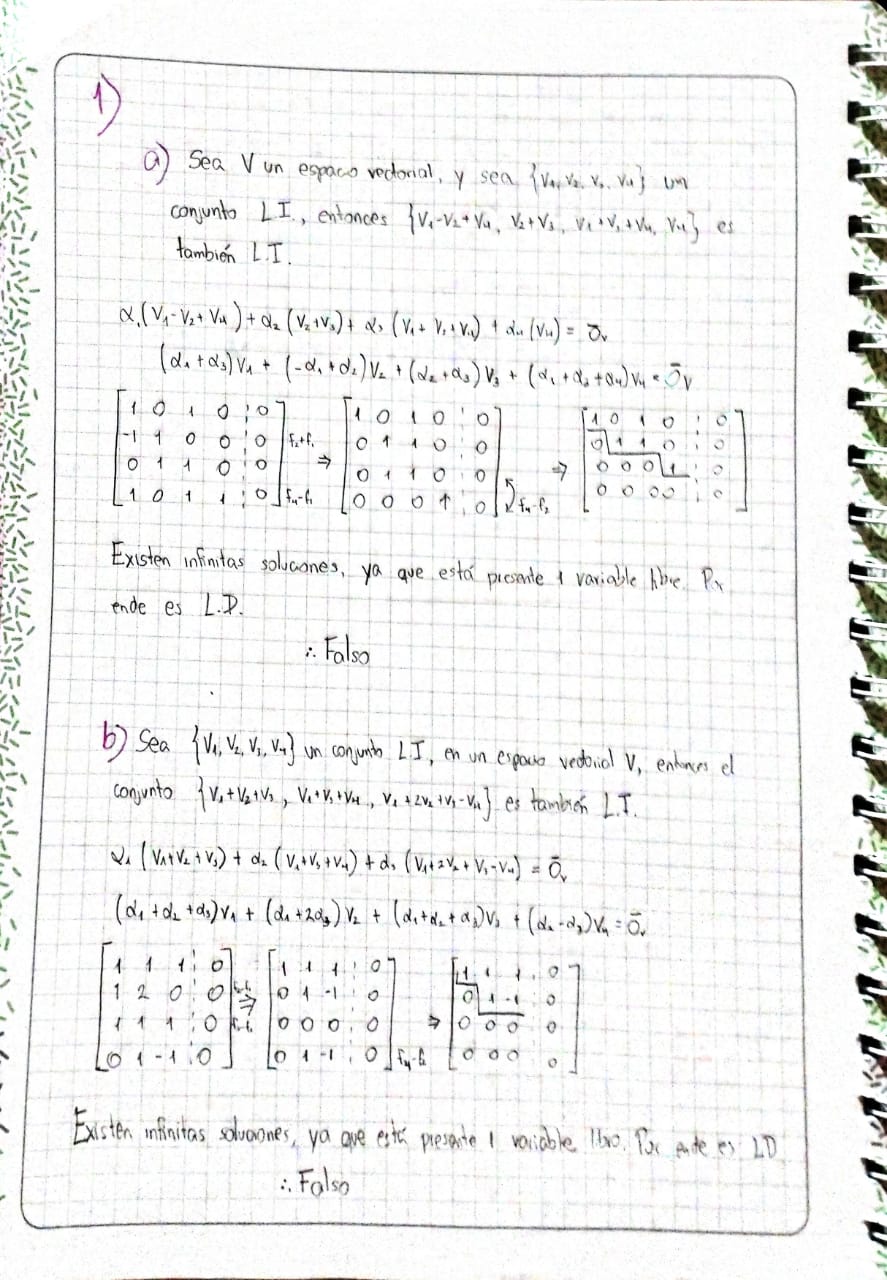 1)
a) Sea V un espacio vectorial, y sea {V₁, V₂, V₃, V₄} un
conjunto L.I., entonces {V₁-V₂+V₄, V₂+V₃, V₁+V₃+V₄, V₄} es
también L.I.
α₁(V₁-V₂+V₄)+α₂(V₂+V₃)+α₃(V₁+V₃+V₄)+α₄(V₄)=0̄ᵥ
(α₁+α₃)V₁+(-α₁+α₂)V₂+(α₂+α₃)V₃+(α₁+α₃+α₄)V₄=0̄ᵥ
[1 0 1 0 ¦ 0] [1 0 1 0 ¦ 0] [1 0 1 0 ¦ 0]
[-1 1 0 0 ¦ 0] f₂+f₁ ⇒ [0 1 1 0 ¦ 0] ⇒ [0 1 1 0 ¦ 0]
[0 1 1 0 ¦ 0] [0 1 1 0 ¦ 0] [0 0 0 1 ¦ 0]
[1 0 1 1 ¦ 0] f₄-f₁ [0 0 0 1 ¦ 0] f₄-f₂ [0 0 0 0 ¦ 0]
Existen infinitas soluciones, ya que está presente 1 variable libre. Por
ende es L.D.
∴ Falso
b) Sea {V₁, V₂, V₃, V₄} un conjunto L.I, en un espacio vectorial V, entonces el
conjunto {V₁+V₂+V₃, V₁+V₃+V₄, V₁+2V₂+V₃-V₄} es también L.I.
α₁(V₁+V₂+V₃)+α₂(V₁+V₃+V₄)+α₃(V₁+2V₂+V₃-V₄)=0̄ᵥ
(α₁+α₂+α₃)V₁+(α₁+2α₃)V₂+(α₁+α₂+α₃)V₃+(α₂-α₃)V₄=0̄ᵥ
[1 1 1 ¦ 0] [1 1 1 ¦ 0] [1 1 1 ¦ 0]
[1 2 0 ¦ 0] ⇒ [0 1 -1 ¦ 0] [0 1 -1 ¦ 0]
[1 1 1 ¦ 0] [0 0 0 ¦ 0] ⇒ [0 0 0 ¦ 0]
[0 1 -1 ¦ 0] [0 1 -1 ¦ 0] f₄-f₂ [0 0 0 ¦ 0]
Existen infinitas soluciones, ya que está presente 1 variable libre. Por ende es LD
∴ Falso